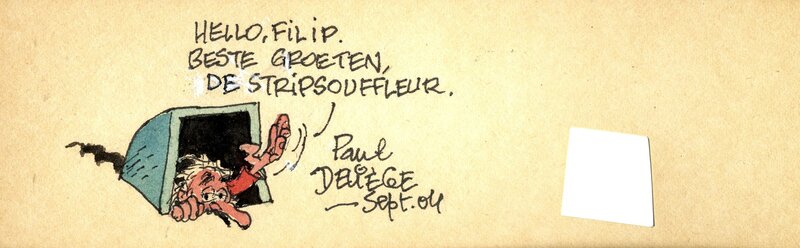 HELLO, FILIP.
BESTE GROETEN,
DE STRIPSOUFFLEUR.
Paul
DELIÈGE
Sept. 04